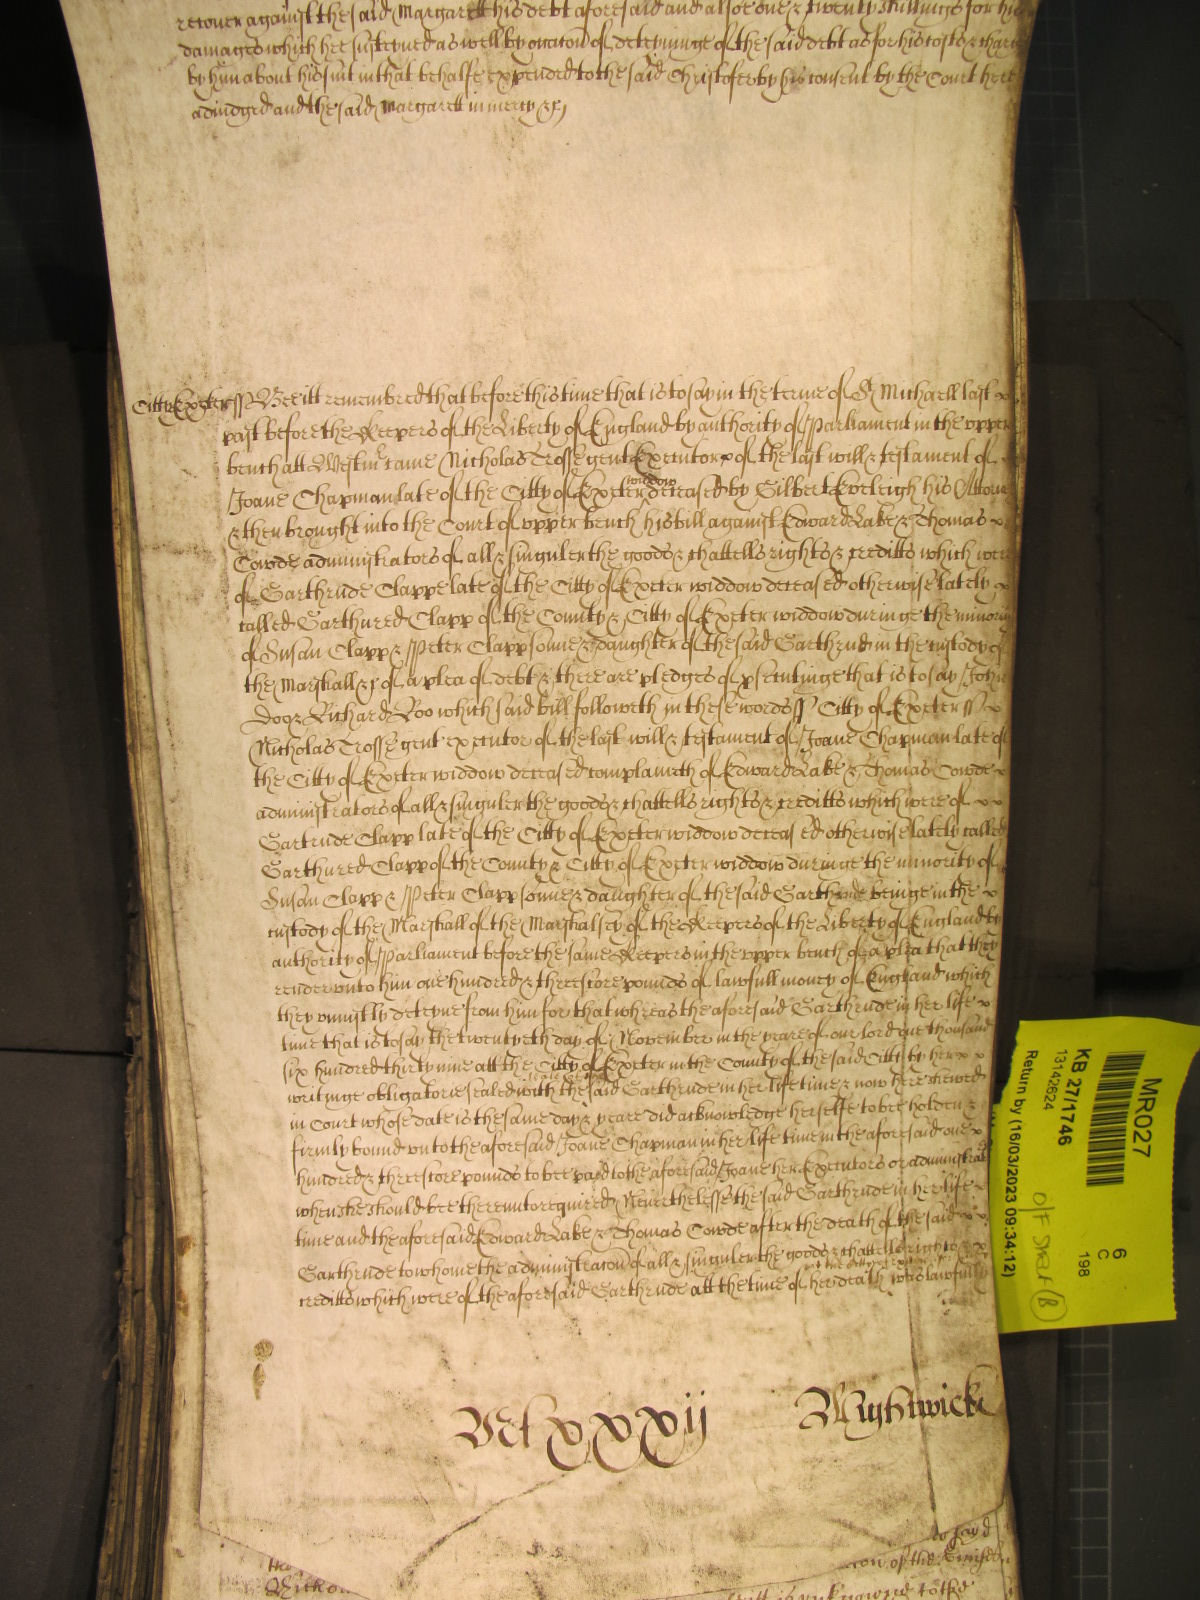 recover against the said Margarett his debt aforesaid and alsoe one & twenty shillings for his
damages which hee susteyned as well by occacon of deteyninge of the said debt as for his costs & charges
by him about his suit in that behalfe expended to the said Christofer by his consent by the Court here
adiudged and the said Margarett in mercy &c
Citty Exeter ss Bee itt remembred that before this time that is to say in the terme of St Michaell last
past before the Keepers of the Liberty of England by authority of Parliament in the vpper
bench att Westmr came Nicholas Trosse gent Executor of the last will & testament of
Joane Chapman late of the Citty of Exeter widdow deceased by Gilbert Eveleigh his Attorn
& then brought into the Court of vpper bench his bill against Edward Lake & Thomas
Cowde administrators of all & singuler the goods & chattells rights & creditts which were
of Garthrude Clappe late of the Citty of Exeter widdow deceased otherwise lately
called Garthured Clapp of the County & Citty of Exeter widdow duringe the minority
of Susan Clapp & Peter Clapp sonne & daughter of the said Garthrud in the custody of
the Marshall &c of a plea of debt & there are pledges of psecutinge that is to say John
Doo & Richard Roo which said bill followeth in these words ss Citty of Exeter ss
Nicholas Trosse gent executor of the last will & testament of Joane Chapman late of
the Citty of Exeter widdow deceased complaineth of Edward Lake & Thomas Cowde
administrators of all & singuler the goods & chattells rights & creditts which were of
Gartrude Clapp late of the Citty of Exeter widdow deceased otherwise lately called
Garthured Clapp of the County & Citty of Exeter widdow duringe the minority of
Susan Clapp & Peter Clapp sonne & daughter of the said Garthrude beinge in the
custody of the Marshall of the Marshalsey of the Keepers of the Liberty of England by
authority of Parliament before the same Keepers in the vpper bench of a plea that they
render vnto him one hundred & threescore pounds of lawfull money of England which
they vniustly deteyne from him for that whereas the aforesaid Garthrude in her life
time that is to say the twentyeth day of November in the yeare of our lord one thousand
six hundred thirty nine att the Citty of Exeter in the County of the said Citty by her
writinge obligatorie sealed with the said Garthrude in her life time & now here shewed
in Court whose date is the same day & yeare did acknowledge herselfe to bee holden &
firmly bound vnto the aforesaid Joane Chapman in her life time in the aforesaid one
hundred & threescore pounds to bee payd to the aforesaid Joane her Executors or administrat
when shee should bee therevnto required Neverthelesse the said Garthrude in her life
time and the aforesaid Edward Lake & Thomas Cowde after the death of the said
Garthrude to whome the administracon of all & singuler the goods & chattells rights &
creditts which were of the aforesaid Garthrude att the time of her death was lawfully
xxxij Wightwicke
MR027
KB 27/1746
13142624
Return by (16/03/2023 09:34:12)
6
C
198